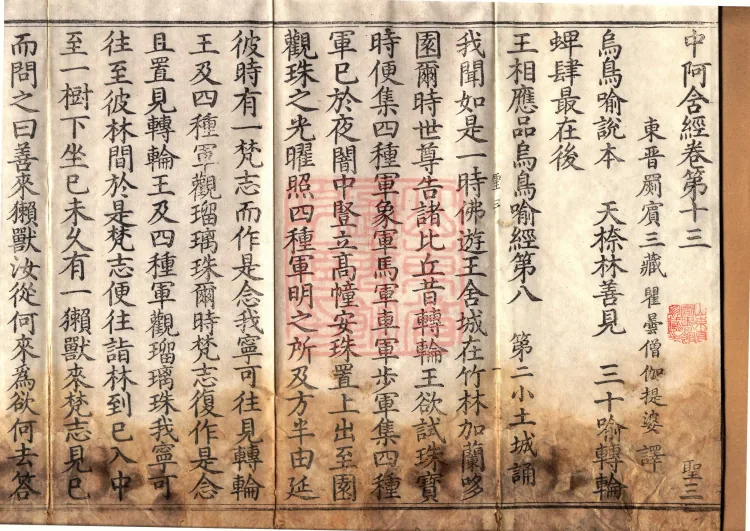 中阿含經卷第十三
東晉罽賓三藏瞿曇僧伽提婆譯 聖三
烏鳥喻說本 天㮈林善見 三十喻轉輪
蜱肆最在後
王相應品烏鳥喻經第八 第二小土城誦
我聞如是一時佛遊王舍城在竹林加蘭哆
園爾時世尊告諸比丘昔轉輪王欲試珠寶
時便集四種軍象軍馬軍車軍步軍集四種
軍巳於夜闇中豎立髙幢安珠置上出至園
觀珠之光曜照四種軍明之所及方半由延
彼時有一梵志而作是念我寧可往見轉輪
王及四種軍觀瑠璃珠爾時梵志復作是念
且置見轉輪王及四種軍觀瑠璃珠我寧可
往至彼林間於是梵志便往詣林到巳入中
至一樹下坐巳未久有一獺獸來梵志見巳
而問之曰善來獺獸汝從何來為欲何去答
聖三